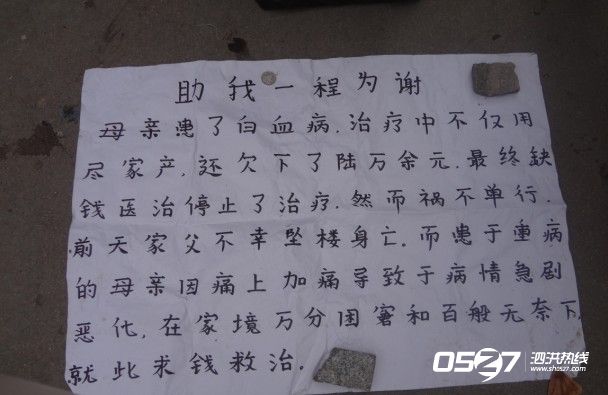 助我一程为谢
母亲患了白血病.治疗中不仅用
尽家产,还欠下了陆万余元.最终缺
钱医治停止了治疗.然而祸不单行.
前天家父不幸坠楼身亡.而患于重病
的母亲因痛上加痛导致于病情急剧
恶化,在家境万分困窘和百般无奈下
就此求钱救治.
0527 泗洪热线
www.sh0527.com